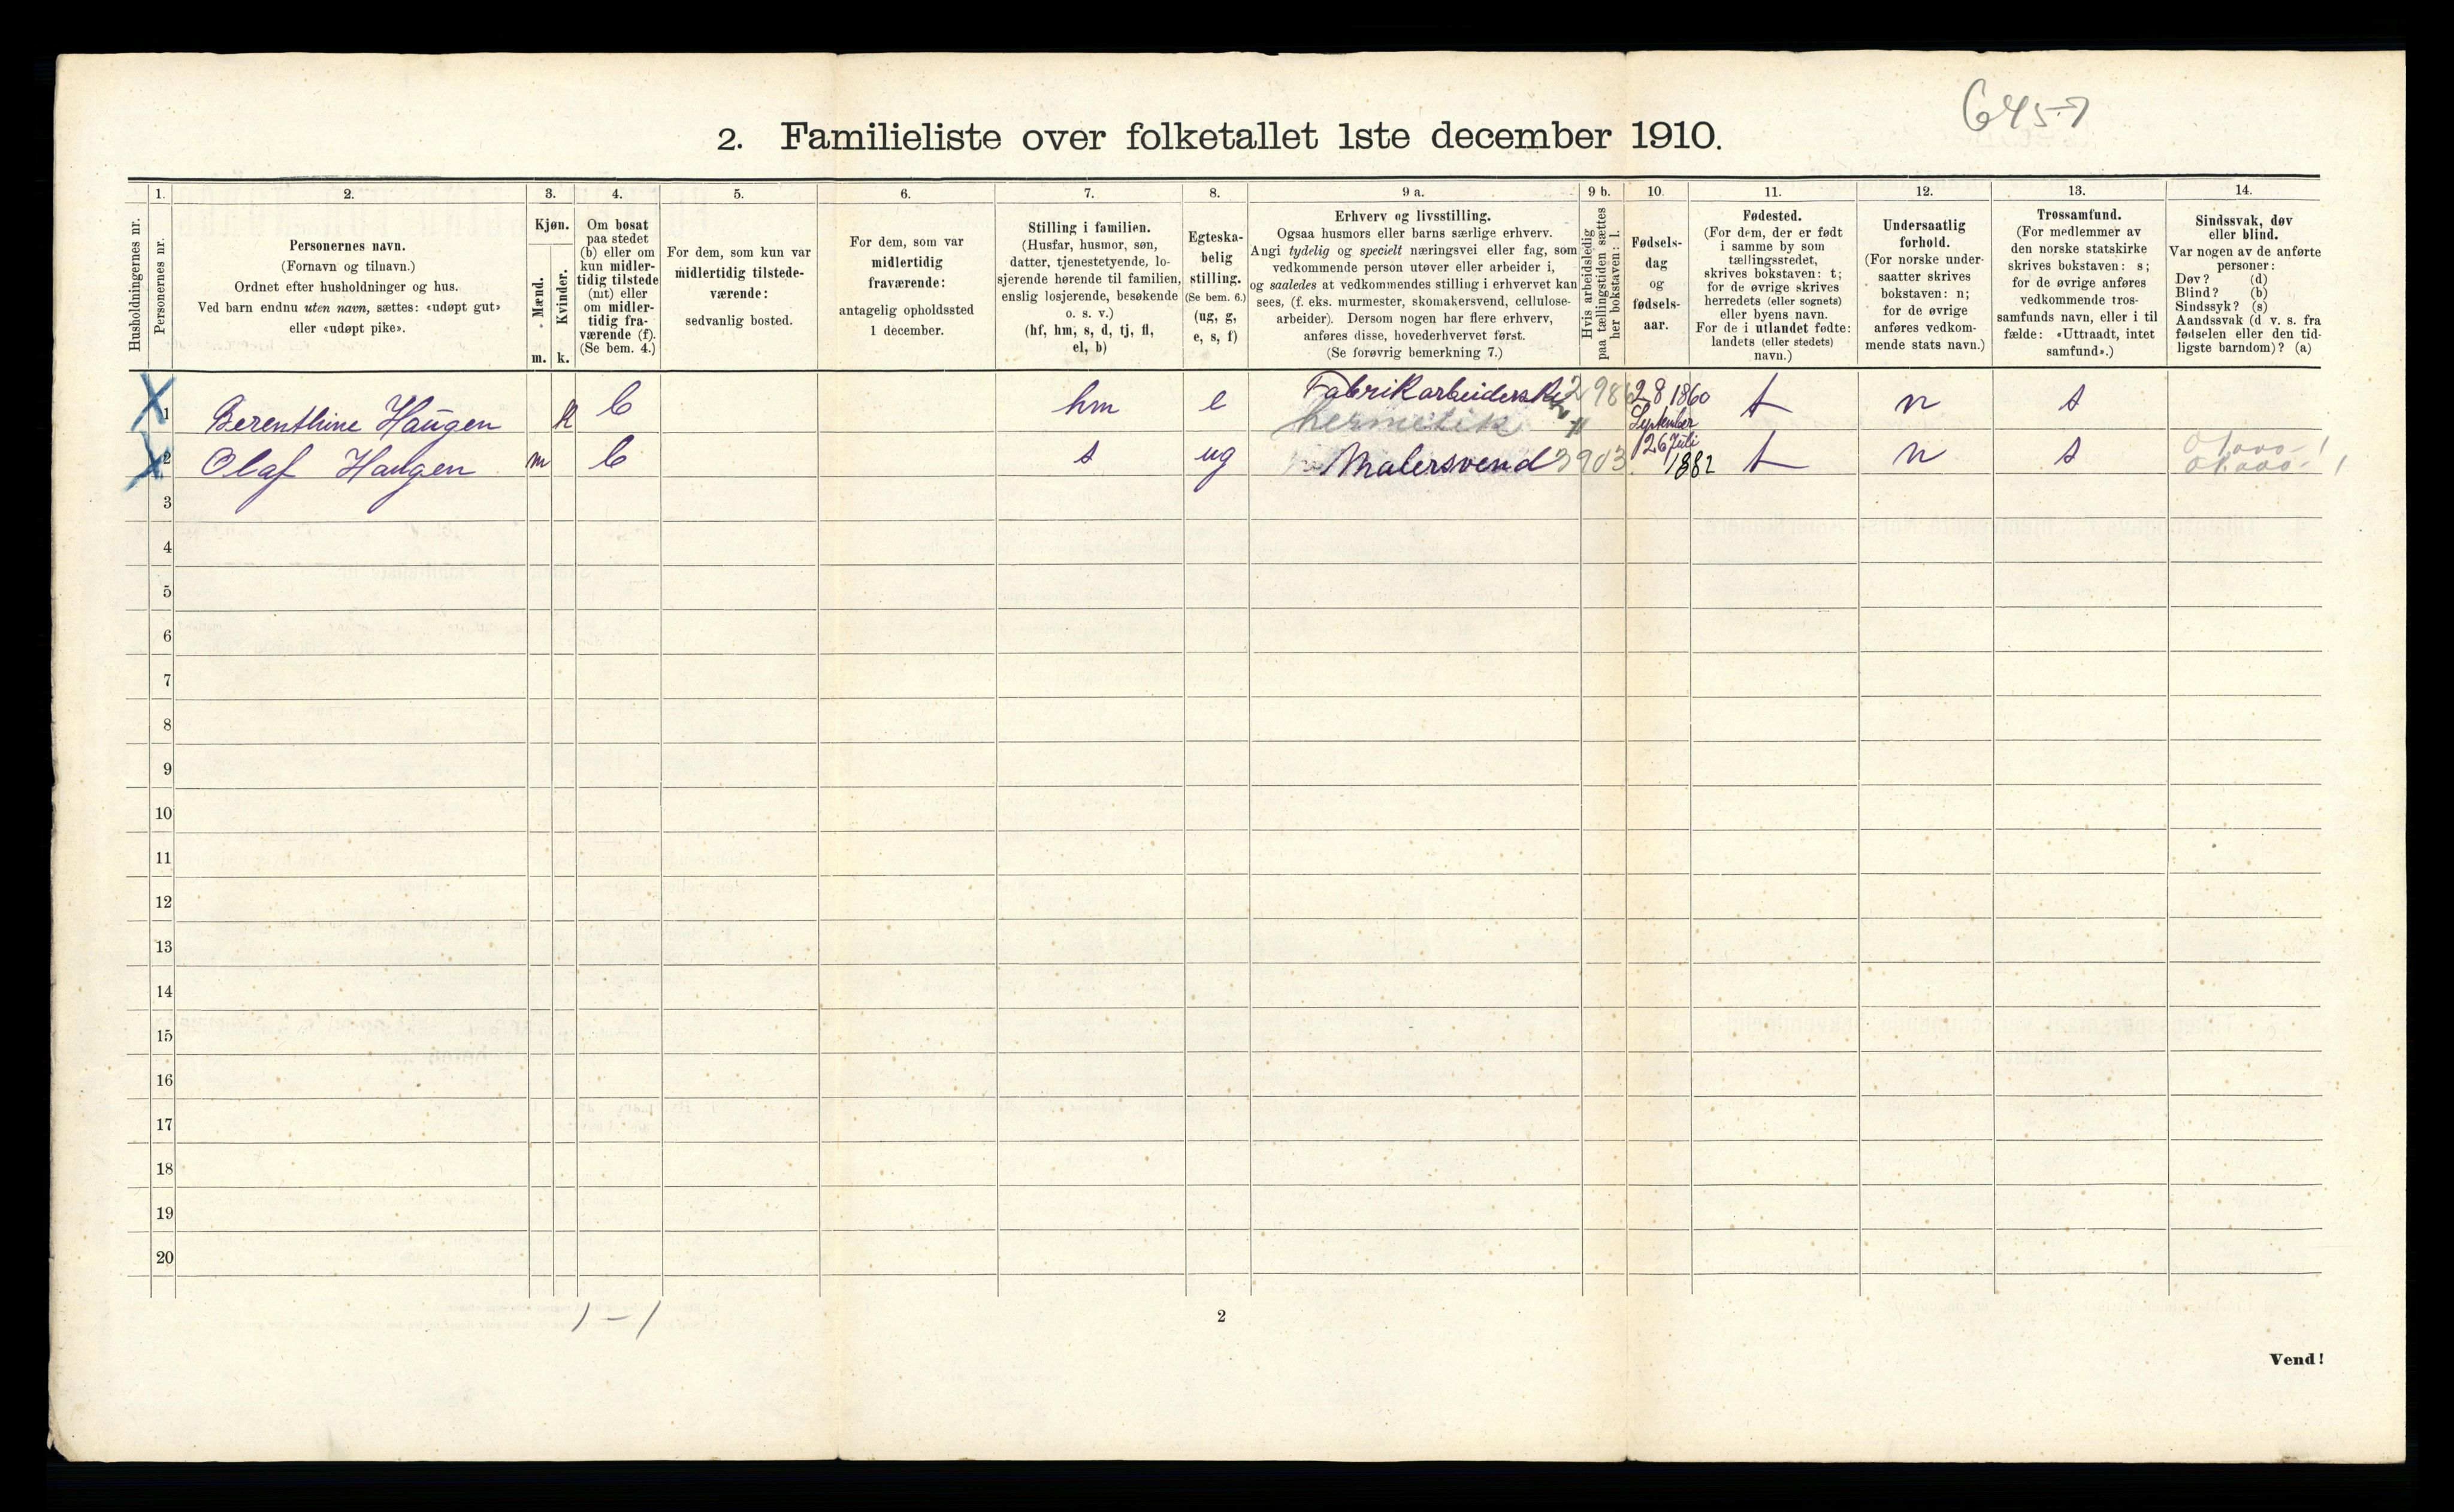 6457
2. Familieliste over folketallet 1ste december 1910.
Husholdningernes nr.
1.
Personernes nr.
2.
Personernes navn.
(Fornavn og tilnavn.)
Ordnet efter husholdninger og hus.
Ved barn endnu uten navn, sættes: «udøpt gut»
eller «udøpt pike».
3.
Kjøn.
Mænd.
Kvinder.
m.
k.
4.
Om bosat
paa stedet
(b) eller om
kun midler-
tidig tilstede
(mt) eller
om midler-
tidig fra-
værende (f).
(Se bem. 4.)
5.
For dem, som kun var
midlertidig tilstede-
værende:
sedvanlig bosted.
6.
For dem, som var
midlertidig
fraværende:
antagelig opholdssted
1 december.
7.
Stilling i familien.
(Husfar, husmor, søn,
datter, tjenestetyende, lo-
sjerende hørende til familien,
enslig losjerende, besøkende
o. s. v.)
(hf, hm, s, d, tj, fl,
el, b)
8.
Egteska-
belig
stilling.
(Se bem. 6.)
(ug, g,
e, s, f)
9 a.
Erhverv og livsstilling.
Ogsaa husmors eller barns særlige erhverv.
Angi tydelig og specielt næringsvei eller fag, som
vedkommende person utøver eller arbeider i,
og saaledes at vedkommendes stilling i erhvervet kan
sees, (f. eks. murmester, skomakersvend, cellulose-
arbeider). Dersom nogen har flere erhverv,
anføres disse, hovederhvervet først.
(Se forøvrig bemerkning 7.)
9 b.
Hvis arbeidsledig
paa tællingstiden sættes
her bokstaven: l.
10.
Fødsels-
dag
og
fødsels-
aar.
11.
Fødested.
(For dem, der er født
i samme by som
tællingsstedet,
skrives bokstaven: t;
for de øvrige skrives
herredets (eller sognets)
eller byens navn.
For de i utlandet fødte:
landets (eller stedets)
navn.)
12.
Undersaatlig
forhold.
(For norske under-
saatter skrives
bokstaven: n;
for de øvrige
anføres vedkom-
mende stats navn.)
13.
Trossamfund.
(For medlemmer av
den norske statskirke
skrives bokstaven: s;
for de øvrige anføres
vedkommende tros-
samfunds navn, eller i til
fælde: «Uttraadt, intet
samfund».)
14.
Sindssvak, døv
eller blind.
Var nogen av de anførte
personer:
Døv? (d)
Blind? (b)
Sindssyk? (s)
Aandssvak (d v. s. fra
fødselen eller den tid-
ligste barndom)? (a)
1 Berenthine Haugen k b hm e Fabrikarbeiderske hermetik 28 September 1860 t n s
2 Olaf Haugen m b s ug Malersvend 3903 26 Juli 1882 t n s
3
4
5
6
7
8
9
10
11
12
13
14
15
16
17
18
19
20
1 - 1
2
Vend!